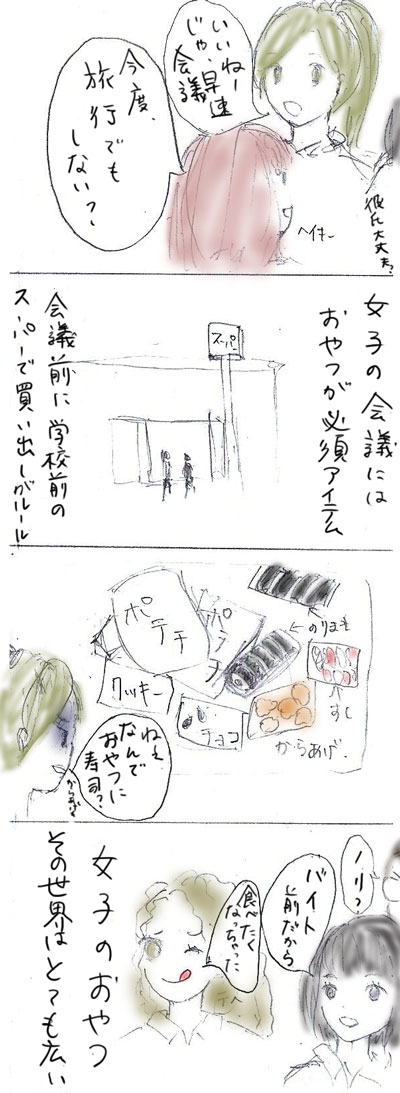 今度、
旅行でも
しない？
いいねー
じゃ、早速
会議
ヘイキー
彼氏大丈夫？
女子の会議には
おやつが必須アイテム
スーパー
会議前に学校前の
スーパーで買い出しがルール
のりまき
ポテチ
ポテチ
クッキー
チョコ
からあげ
すし
ねぇ
なんで
おやつに
寿司？
からあげも
ノリ？
バイト
前だから
食べたく
なっちゃった
テヘ
女子のおやつ
その世界はとても広い